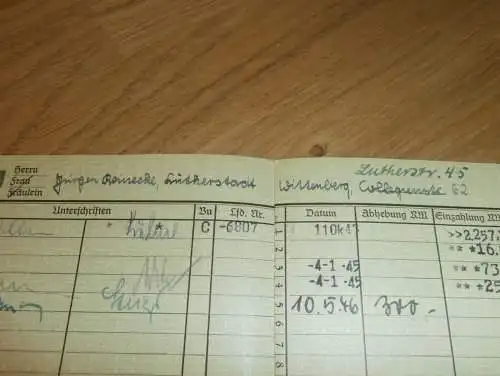 Herrn
Frau
Fräulein
Jürgen Reinecke, Lutherstadt Wittenberg, Collegienstr 62
Lutherstr. 45
Unterschriften Bu Lfd. Nr. Datum Abhebung RM Einzahlung RM
C -6807 1 110k4 >>2.257,
2 ** *16.
3 -4-1-45 ** *73
4 -4-1-45 ** *25
5 10.5.46 300.-
6
7
8